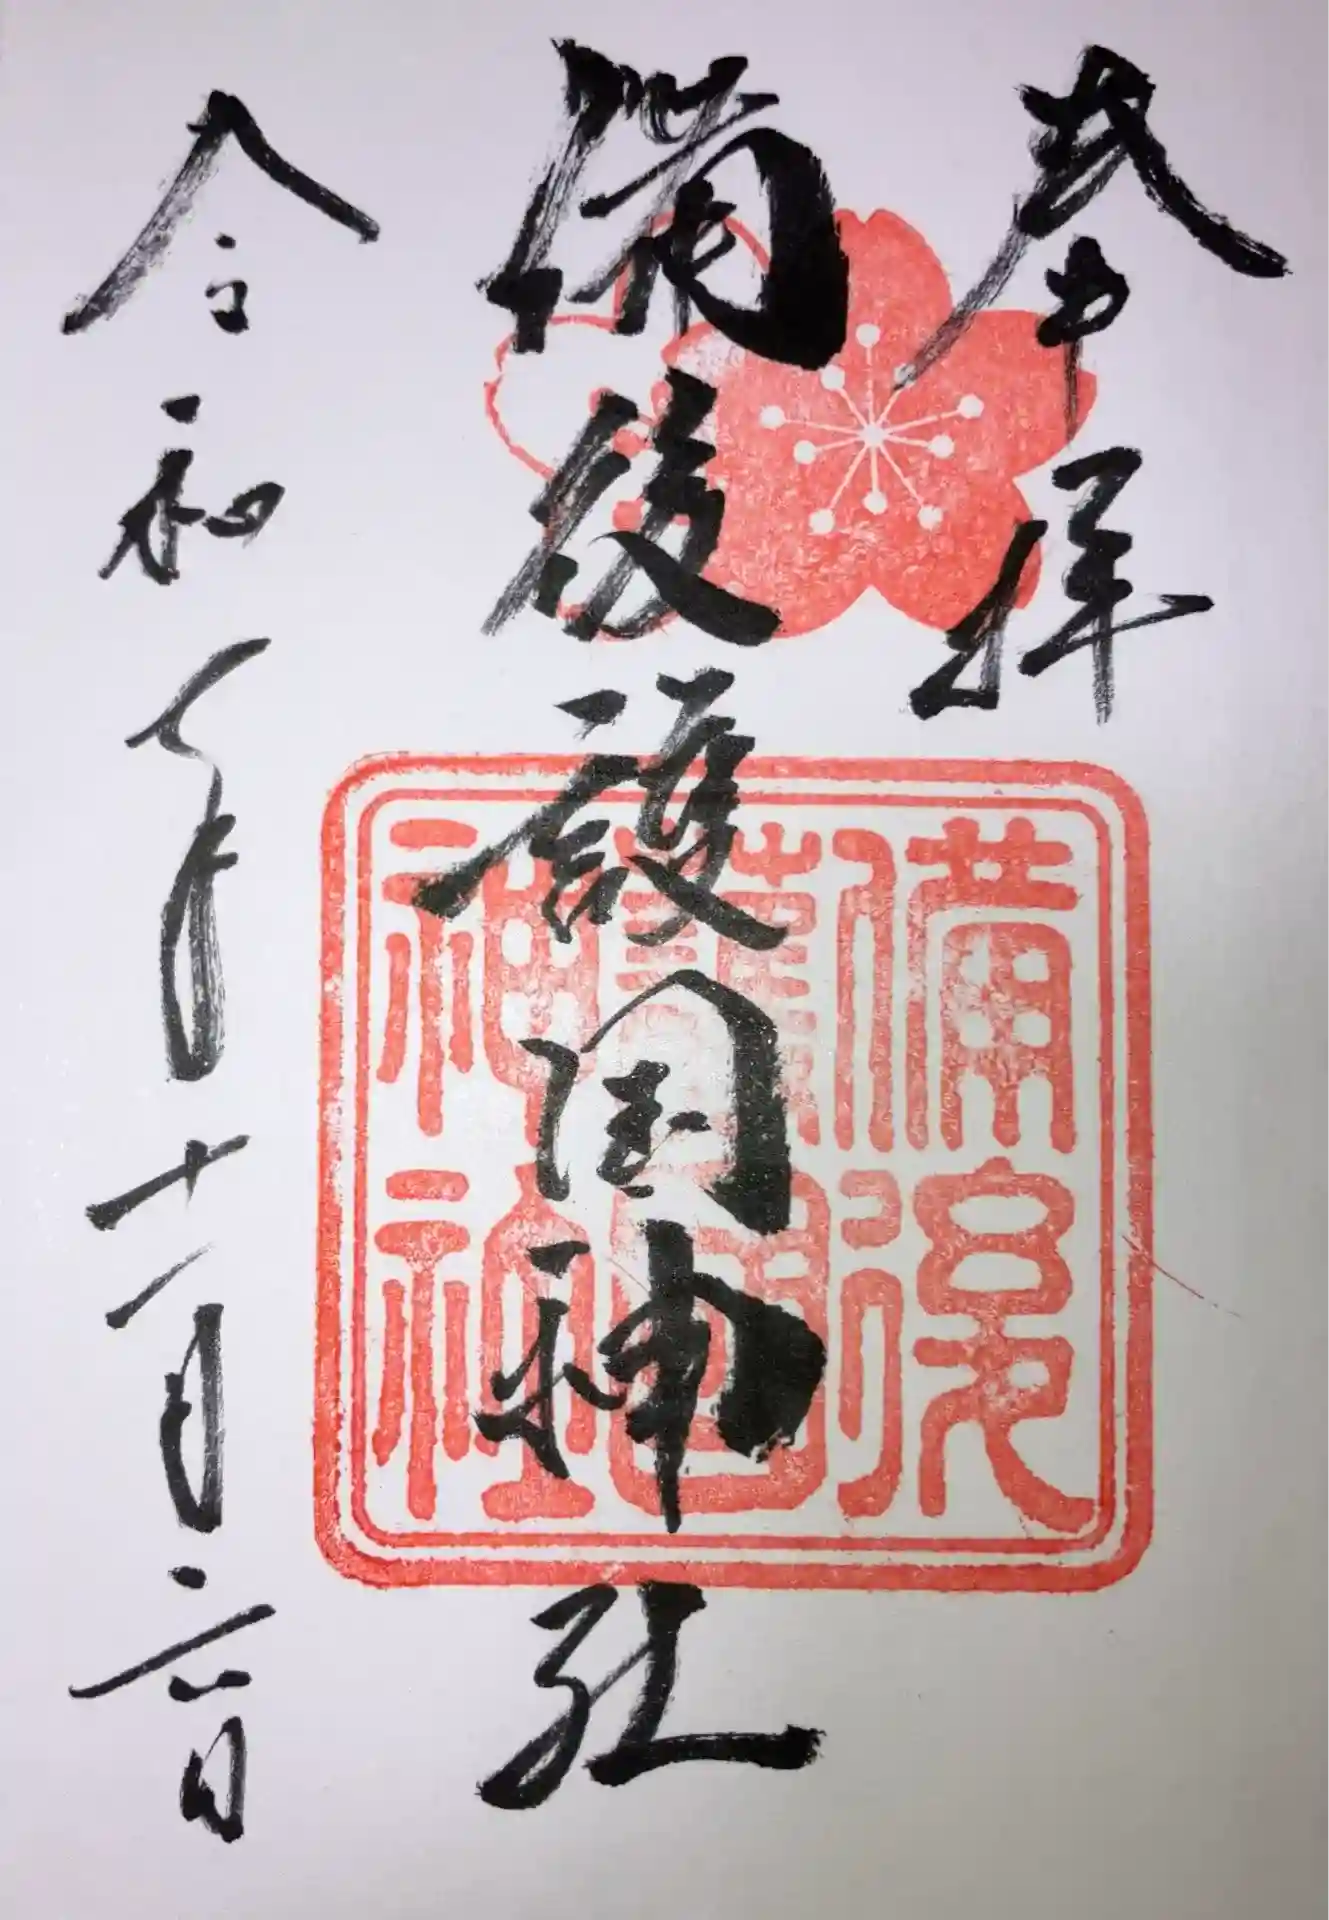 奉拝
備後護国神社
令和年十一月六日
備後
護國
神社